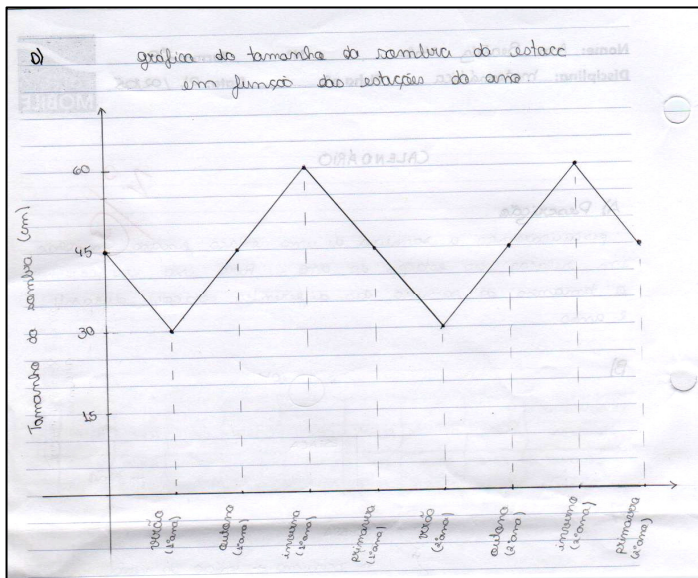 D) gráfico do tamanho da sombra da estaca
em função das estações do ano.
Tamanho da sombra (cm)
60
45
30
15
verão
(1º ano)
outono
(1º ano)
inverno
(1º ano)
primavera
(1º ano)
verão
(2º ano)
outono
(2º ano)
inverno
(2º ano)
primavera
(2º ano)